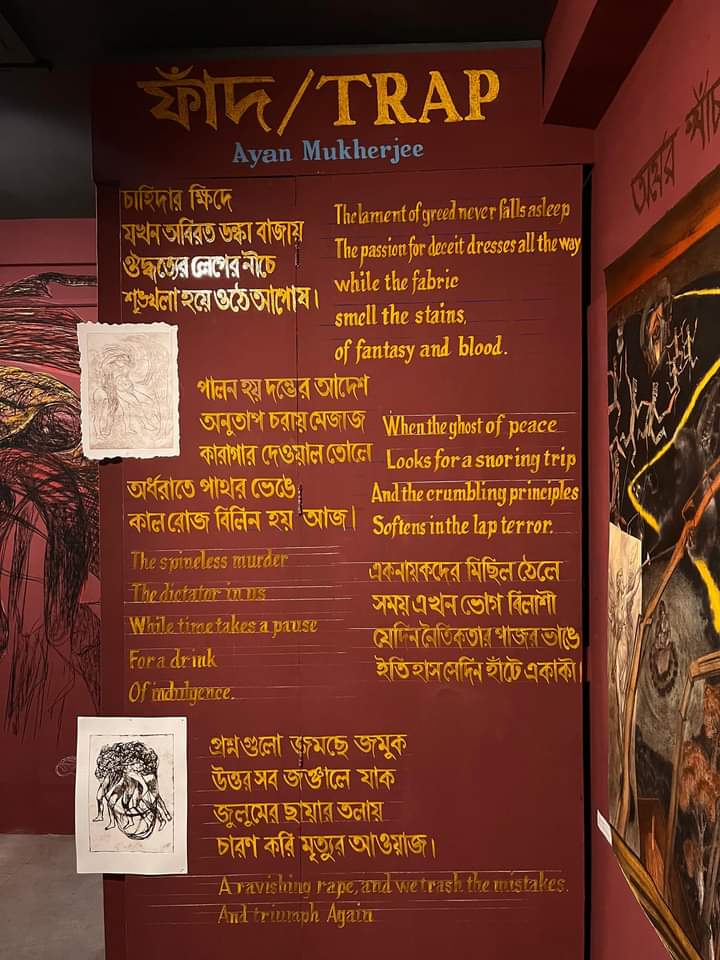 ফাঁদ/TRAP
Ayan Mukherjee
চাহিদার ক্ষিদে
যখন অবিরত ডঙ্কা বাজায়
ঔদ্ধত্যের লেপের নীচে
শৃঙ্খলা হয়ে ওঠে আপোষ।
The lament of greed never falls asleep
The passion for deceit dresses all the way
while the fabric
smell the stains,
of fantasy and blood.
পালন হয় দম্ভের আদেশ
অনুতাপ চরায় মেজাজ
কারাগার দেওয়াল তোলে
অর্ধরাতে পাথর ভেঙে
কাল রোজ বিলিন হয় আজ।
When the ghost of peace
Looks for a snoring trip
And the crumbling principles
Softens in the lap terror.
The spineless murder
The dictator in us
While time takes a pause
For a drink
Of indulgence.
একনায়কদের মিছিল ঠেলে
সময় এখন ভোগ বিলাশী
যেদিন নৈতিকতার পাজর ভাঙে
ইতিহাস সেদিন হাঁটে একাকী।
প্রশ্নগুলো জমছে জমুক
উত্তর সব জঞ্জালে যাক
জুলুমের ছায়ার তলায়
চারণ করি মৃত্যুর আওয়াজ।
A ravishing rape, and we trash the mistakes.
And triumph Again
অন্তর